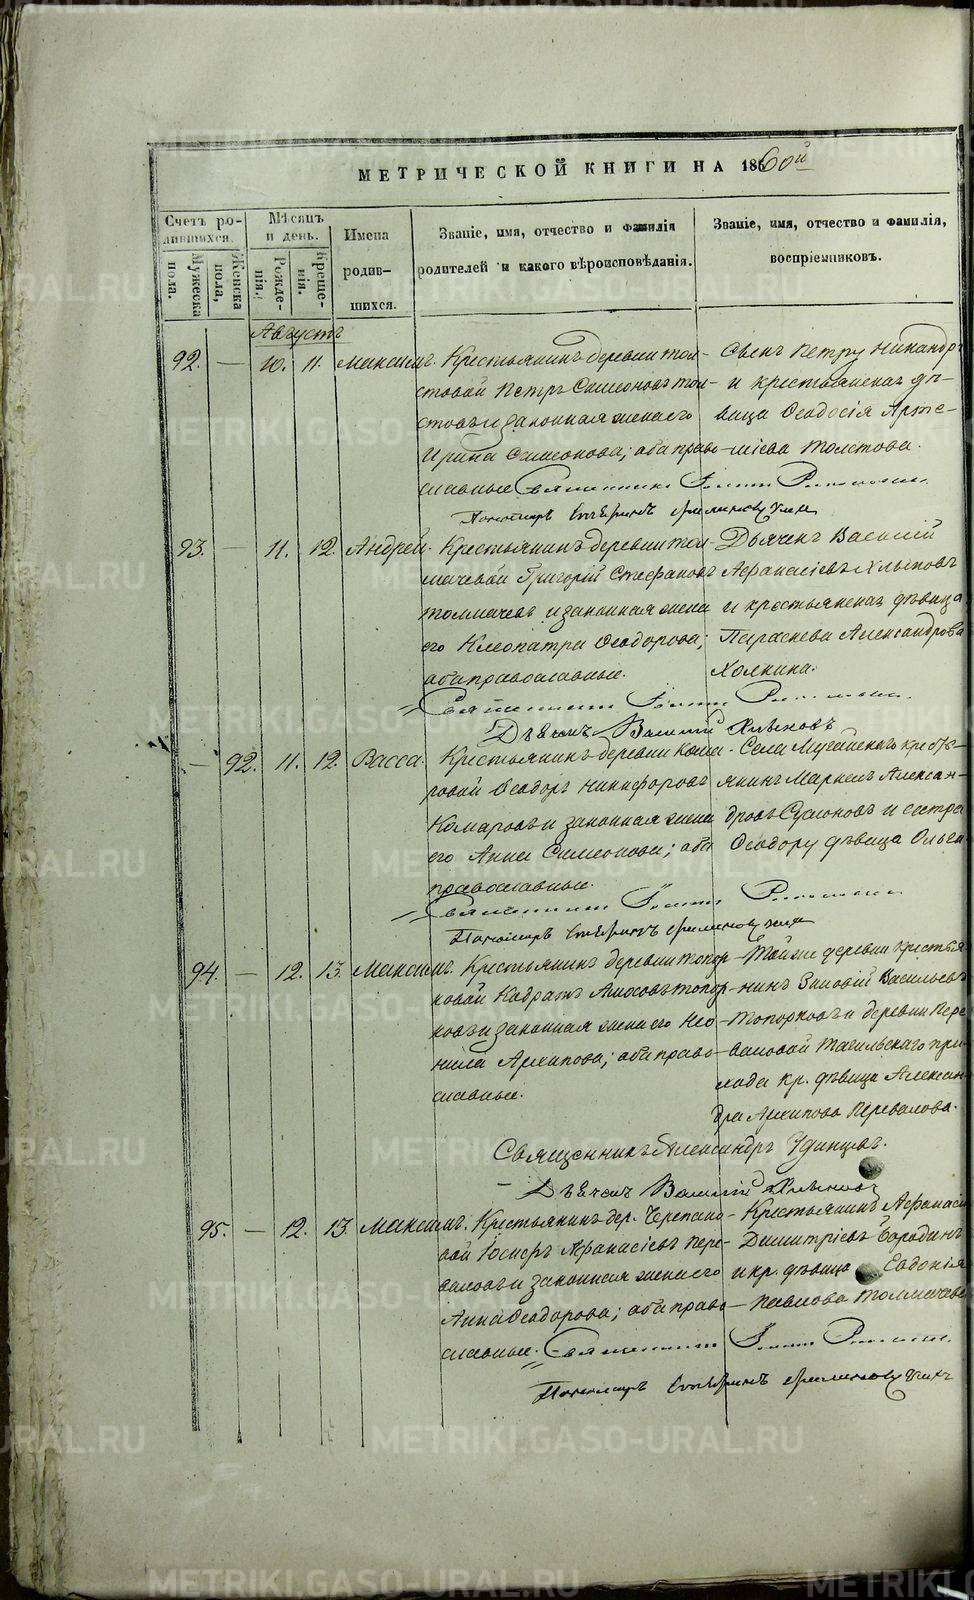 МЕТРИЧЕСКОЙ КНИГИ НА 1860й
Счетъ ро-
дившихся.
Мужеска
пола.
Женска
пола,
Мѣсяцъ
и день.
Рожде-
нія.
Креще-
нія.
Имена
родив-
шихся.
Званіе, имя, отчество и фамилія
родителей и какого вѣроисповѣданія.
Званіе, имя, отчество и фамилія,
воспріемниковъ.
Августъ
92. — 10. 11. Максимъ.
Крестьянинъ деревни Тол-
стовой Петръ Симеоновъ Тол-
стовъ и законная жена его
Ирина Симеонова; оба право-
славные
Петру Никандр
и крестьянская дѣ-
вица Ѳеодосія Арте-
мiева Толстова.
Священникъ Іоаннъ
Пономарь
93. — 11. 12. Андрей.
Крестьянинъ деревни Тол-
мачевой Григорій Стефановъ
Толмачевъ и законная жена
его Клеопатра Ѳеодорова;
оба православные.
Дьячекъ Василій
Афанасіевъ Хлыновъ
и крестьянская дѣвица
Параскева Александрова
Холкина.
Священникъ Іоаннъ
Дьячекъ Василій Хлыновъ
— 92. 11. 12. Васса.
Крестьянинъ деревни Кома-
ровой Ѳеодоръ Никифоровъ
Комаровъ и законная жена
его Анна Симеонова; оба
православные.
Села Мугайскаго кресть-
янинъ Маркелъ Алексан-
дровъ и сестра
Ѳеодору дѣвица
Священникъ Іоаннъ
Пономарь
94. — 12. 13. Максимъ.
Крестьянинъ деревни Топор-
ковой Кодратъ Амосовъ Топор-
ковъ и законная жена его Нео-
нила Архипова; оба право-
славные.
Той же деревни крестья
нинъ Зиновій Васильевъ
Топорковъ и деревни Пере
валовой Тагильскаго при-
хода кр. дѣвица Алексан
дра Архипова Перевалова.
Священникъ Александръ Удинцевъ.
Дьячекъ Василій Хлыновъ
95. — 12. 13. Максимъ.
Крестьянинъ дер. Черепано-
вой Іосифъ Афанасіевъ Пере-
валовъ и законная жена его
Анна Ѳеодорова; оба право-
славные.
Крестьянинъ Афанасій
Димитріевъ Бородинъ
и кр. дѣвица Евдокія
Павлова Толмачева
Священникъ Іоаннъ
Пономарь
METRIKI.GASO-URAL.RU